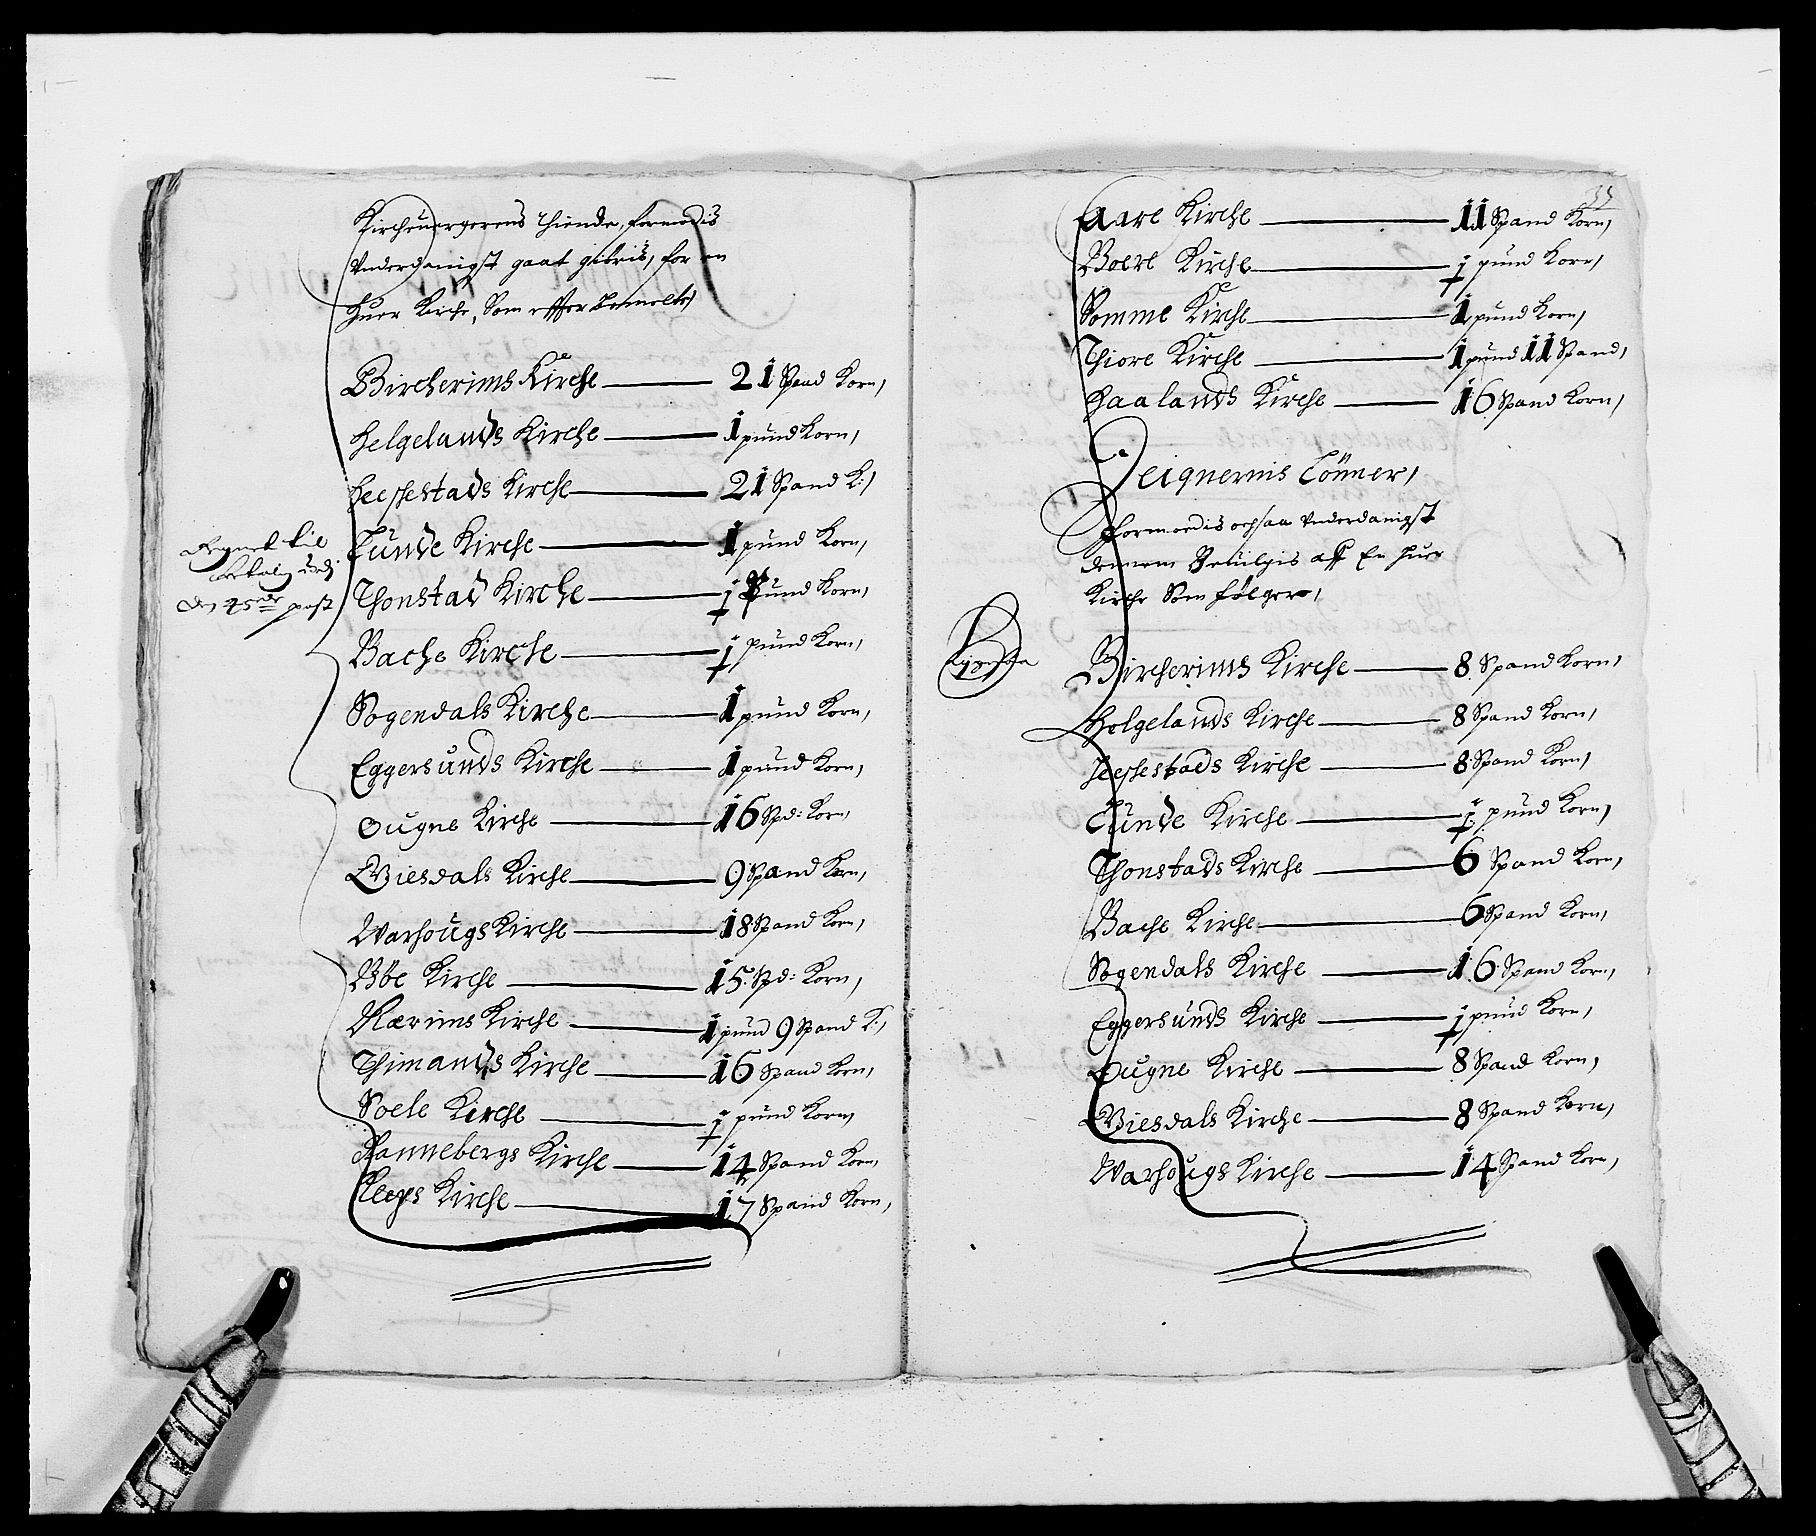 Kircheuergerens Thiende, formodis
Vnderdanigst gaat gibris, for en
huer Kirche, Som effter bemelte,
Bircherims Kirche — 21 Spand Korn,
Helgelands Kirche — 1 pund Korn,
Heeskestads Kirche — 21 Spand K:,
Lunde Kirche — 1 pund Korn,
Thonstad Kirche — ½ Pund Korn,
Bache Kirche — ½ pund Korn,
Sogendals Kirche — 1 pund Korn,
Eggersunds Kirche — 1 pund Korn,
Ougne Kirche — 16 Spd: Korn,
Giesdals Kirche — 9 Spand Korn,
Warhougs Kirche — 18 Spand Korn,
Böe Kirche — 15 Spd: Korn,
Nærims Kirche — 1 pund 9 Spand K:,
Thimands Kirche — 16 Spand Korn,
Soele Kirche — ½ pund Korn,
Rannebergs Kirche — 14 Spand Korn,
Kleps Kirche — 17 Spand Korn,
Regnet til
den 45de post
35
Aare Kirche — 11 Spand Korn,
Boere Kirche — ½ pund Korn,
Somme Kirche — 1 pund Korn,
Thiore Kirche — 1 pund 11 Spand,
Haalands Kirche — 16 Spand Korn,
Deignernis Lönner,
Formoedis ochsaa Vnderdanigst
dennem aff En huer
Kirche Som følger,
Bircherims Kirche — 8 Spand Korn,
Helgelands Kirche — 8 Spand Korn,
Heeskestads Kirche — 8 Spand Korn,
Lunde Kirche — ½ pund Korn,
Thonstads Kirche — 6 Spand Korn,
Bache Kirche — 6 Spand Korn,
Sogendals Kirche — 16 Spand Korn,
Eggersunds Kirche — ½ pund Korn,
Ougne Kirche — 8 Spand Korn,
Giesdals Kirche — 8 Spand Korn,
Warhougs Kirche — 14 Spand Korn,